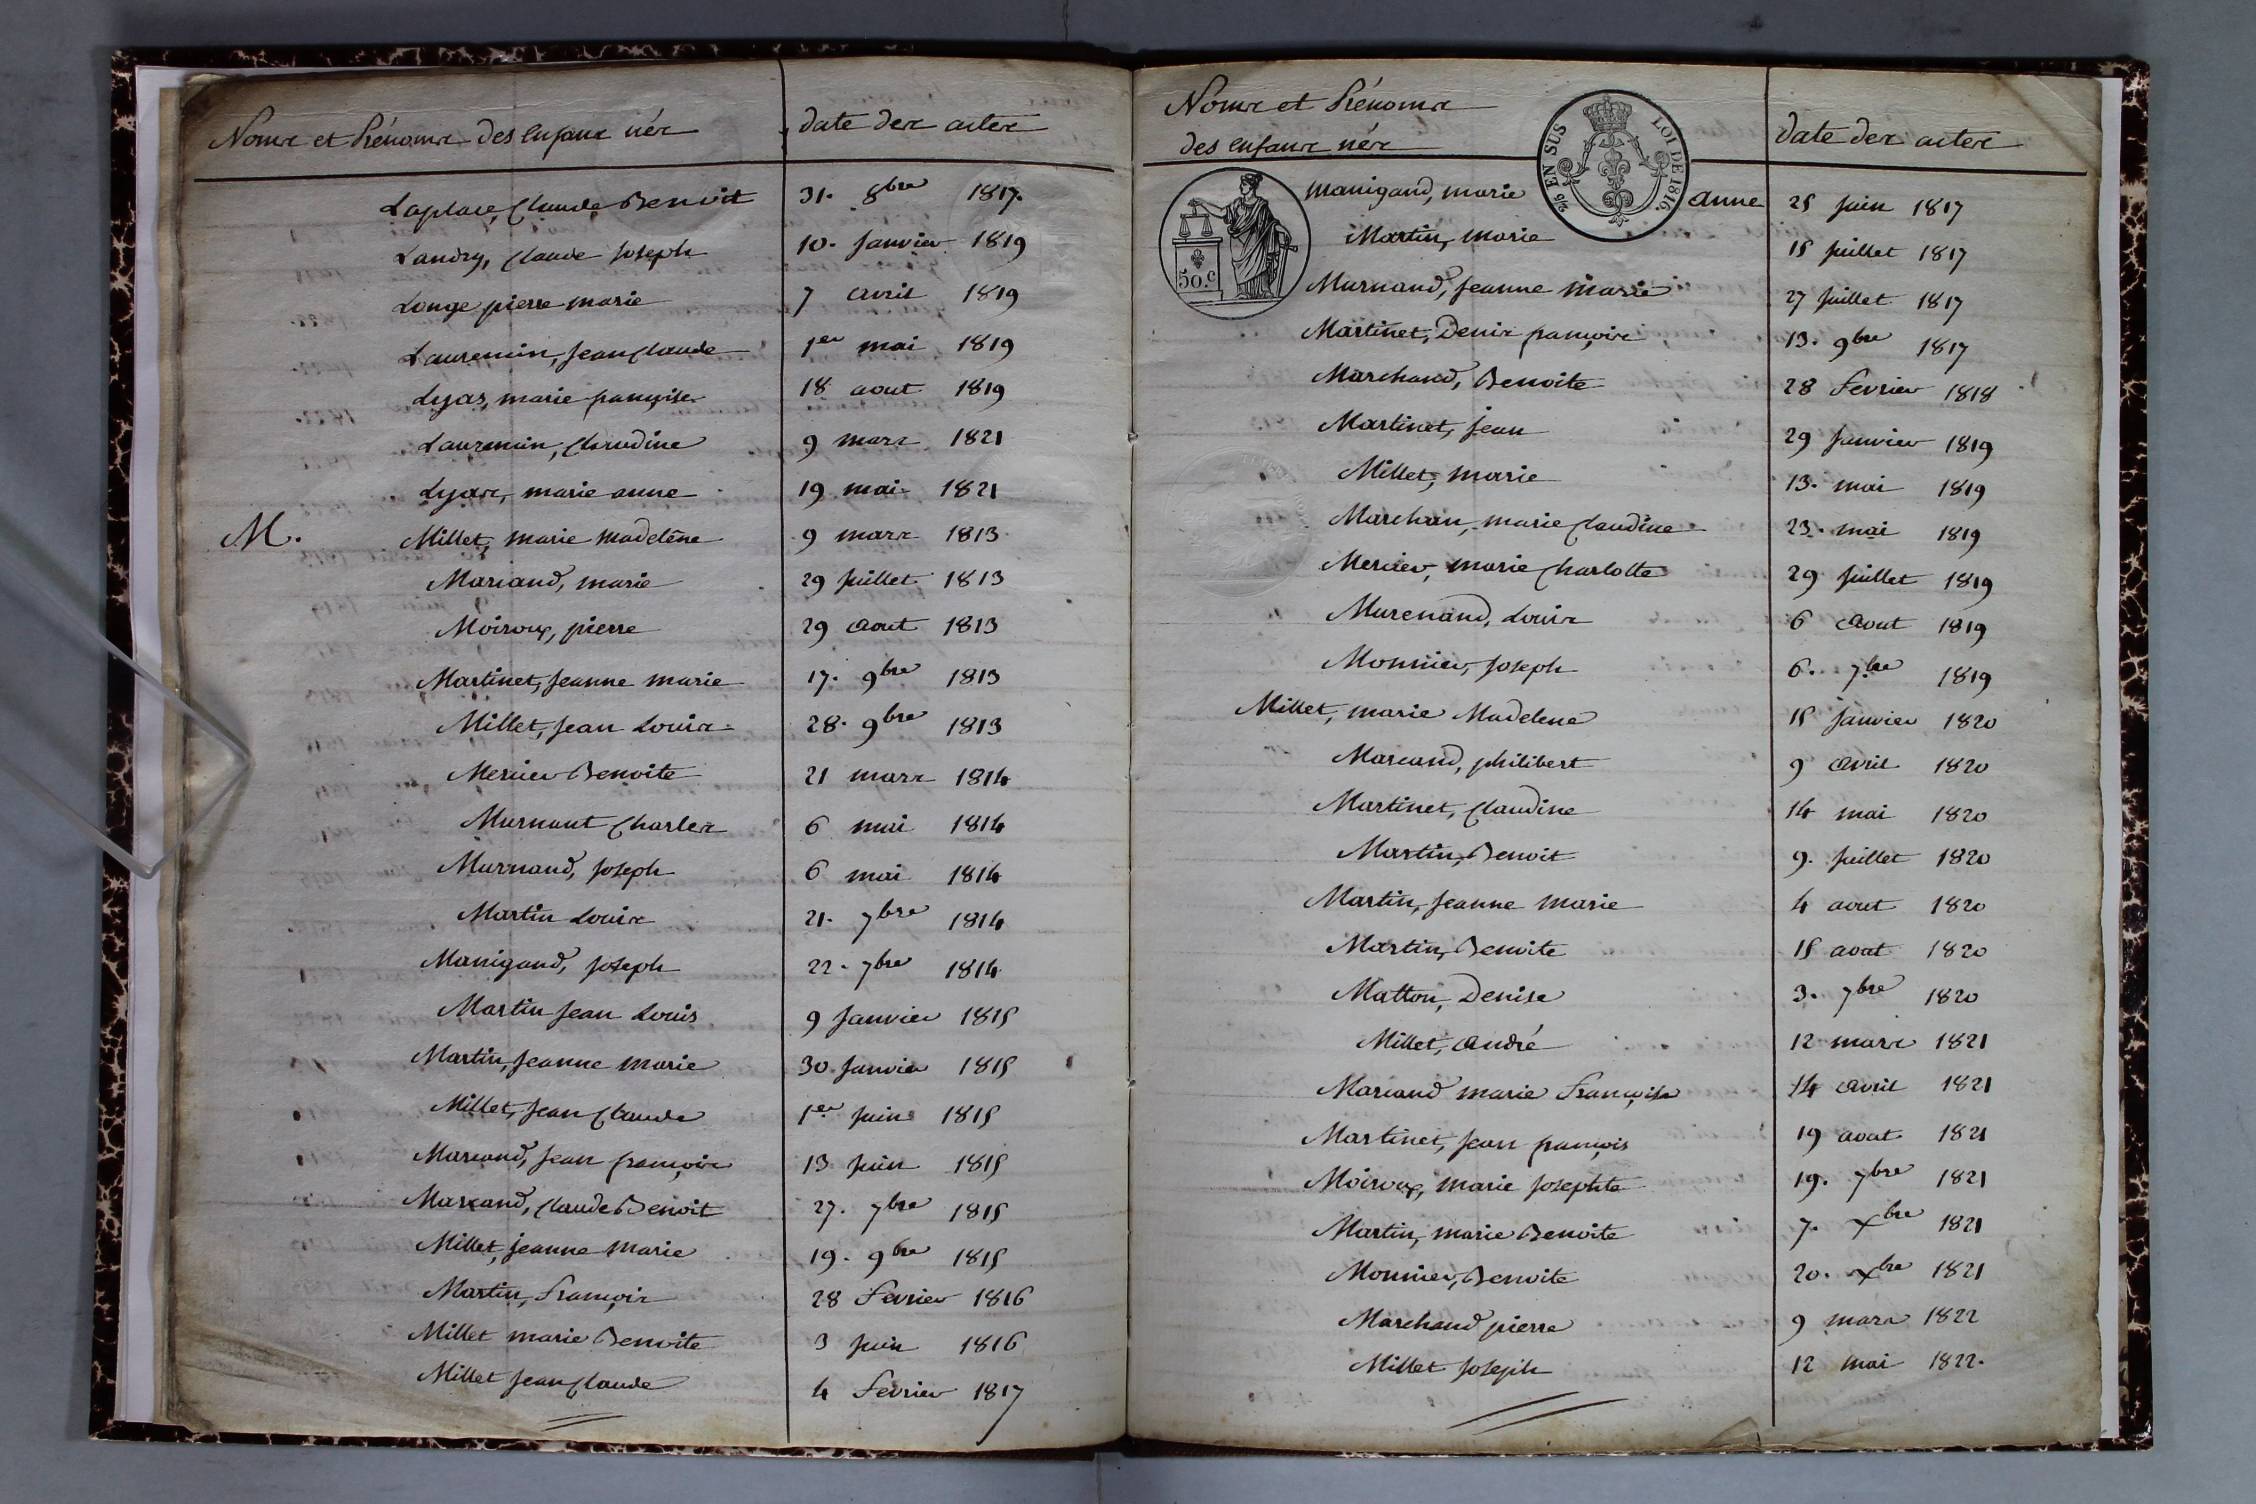 Noms et Prénoms des Enfans nés date des actes
Laplace, Claude Benoit 31. 8bre 1817.
Landry, Claude Joseph 10. Janvier 1819
Longe pierre marie 7 avril 1819
Lauremin, Jean Claude 1er mai 1819
Lyas, marie françoise 18 aout 1819
Lauremin, Claudine 9 mars 1821
Lyas, marie anne 19 mai 1821
M. Millet, marie Madelène 9 mars 1813
Marcand, marie 29 Juillet 1813
Moiroux, pierre 29 aout 1813
Martinet, Jeanne marie 17. 9bre 1813
Millet, Jean Louis 28. 9bre 1813
Mercier Benoite 21 mars 1814
Murnant Charles 6 mai 1814
Murnand, Joseph 6 mai 1814
Martin Louis 21. 7bre 1814
Manigand, Joseph 22. 7bre 1814
Martin Jean Louis 9 Janvier 1815
Martin, Jeanne marie 30 Janvier 1815
Millet, Jean Claude 1er Juin 1815
Marcand, Jean françois 13 Juin 1815
Marcand, Claude Benoit 27. 7bre 1815
Millet, jeanne Marie 19. 9bre 1815
Martin, François 28 Fevrier 1816
Millet marie Benoite 3 Juin 1816
Millet Jean Claude 4 Fevrier 1817
Noms et Prénoms
des Enfans nés date des actes
EN SUS LOI DE 1816.
50.c
Manigand, marie anne 25 Juin 1817
Martin, marie 15 Juillet 1817
Murnand, Jeanne Marie 27 Juillet 1817
Martinet, Denis françois 13. 9bre 1817
Marchand, Benoite 28 Fevrier 1818
Martinet, Jean 29 Janvier 1819
Millet, marie 13. mai 1819
Marchan, marie Claudine 23. mai 1819
Mercier, marie Charlotte 29 Juillet 1819
Murenand, Louis 6 Aout 1819
Monnier, Joseph 6. 7bre 1819
Millet, marie Madelene 15 Janvier 1820
Marcand, philibert 9 avril 1820
Martinet, Claudine 14 mai 1820
Martin, Benoit 9. Juillet 1820
Martin, Jeanne marie 4 aout 1820
Martin, Benoite 15 aout 1820
Matton, Denise 3. 7bre 1820
Millet, André 12 mars 1821
Marcand marie Françoise 14 avril 1821
Martinet, Jean françois 19 aout 1821
Moiroux, marie Josephte 19. 7bre 1821
Martin, marie Benoite 7. Xbre 1821
Monnier, Benoite 20. Xbre 1821
Marchand pierre 9 mars 1822
Millet Joseph 12 Mai 1822.